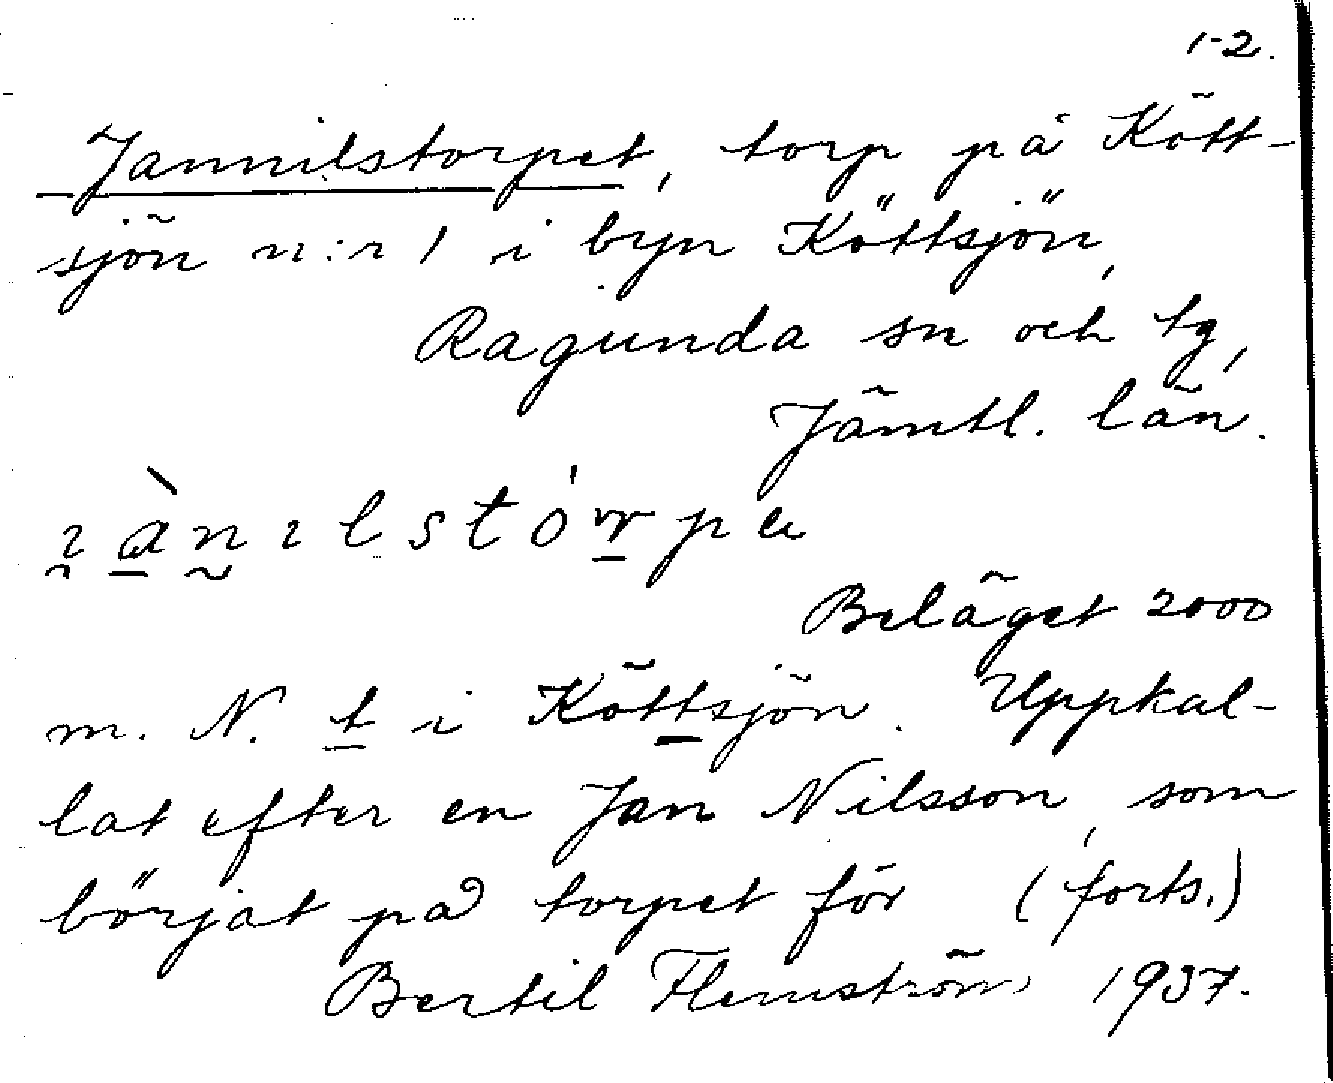 1-2.
Jannilstorpet, torp på Kött-
sjön n:r 1 i byn Köttsjön,
Ragunda sn och tg,
Jämtl. län.
ı̯ànılstórpa
Beläget 2000
m. N. t i Köttsjön. Uppkal-
lat efter en Jan Nilsson, som
börjat på torpet för (forts.)
Bertil Flemström 1937.